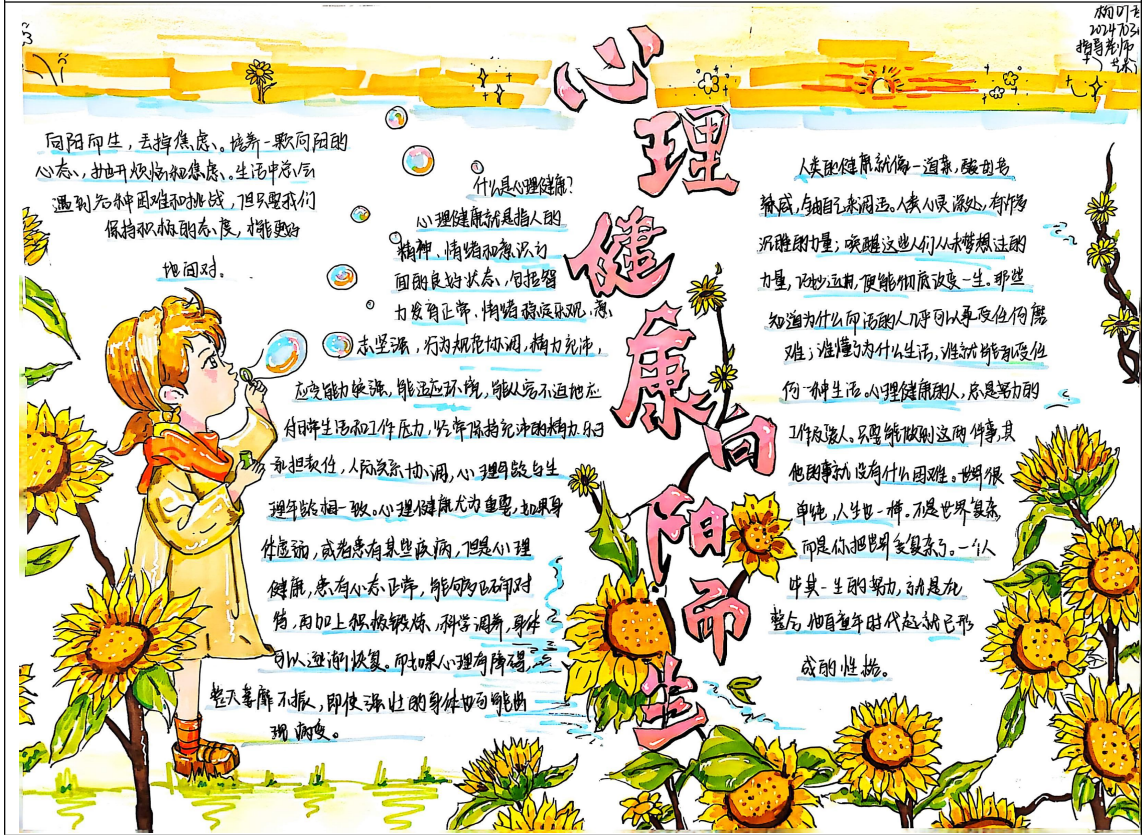 心理健康向阳而生
2024703
指导老师
向阳而生，丢掉焦虑、培养一颗向阳的
心态，抛开烦恼和焦虑。生活中总会
遇到各种困难和挑战，但只要我们
保持积极的态度，才能更好
地面对。
什么是心理健康？
心理健康就是指人的
精神、情绪和意识方
面的良好状态，包括智
力发育正常、情绪稳定乐观，意
志坚强，行为规范协调，精力充沛，
应变能力较强，能适应环境，能从容不迫地应
付日常生活和工作压力，经常保持充沛的精力，乐于
承担责任，人际关系协调，心理年龄与生
理年龄相一致。心理健康尤为重要，如果身
体虚弱，或者患有某些疾病，但是心理
健康，患有心态正常，能够正确对
待，再加上积极锻炼，科学调养，身体
可以逐渐恢复。而如果心理有障碍，
整天萎靡不振，即使强壮的身体也可能出
现病变。
人类的健康就像一道菜，酸甜苦
辣咸，全由自己来调适。人类心灵深处，有许多
沉睡的力量；唤醒这些人们从未梦想过的
力量，巧妙运用，便能彻底改变一生。那些
知道为什么而活的人几乎可以承受任何磨
难；谁懂了为什么生活，谁就能承受任
何一种生活。心理健康的人，总是努力的
工作及爱人。只要能做到这两件事，其
他的事就没有什么困难。世界很
单纯，人生也一样。不是世界复杂，
而是你把世界变复杂了。一个人
毕其一生的努力，就是在
整合他自童年时代起就已形
成的性格。